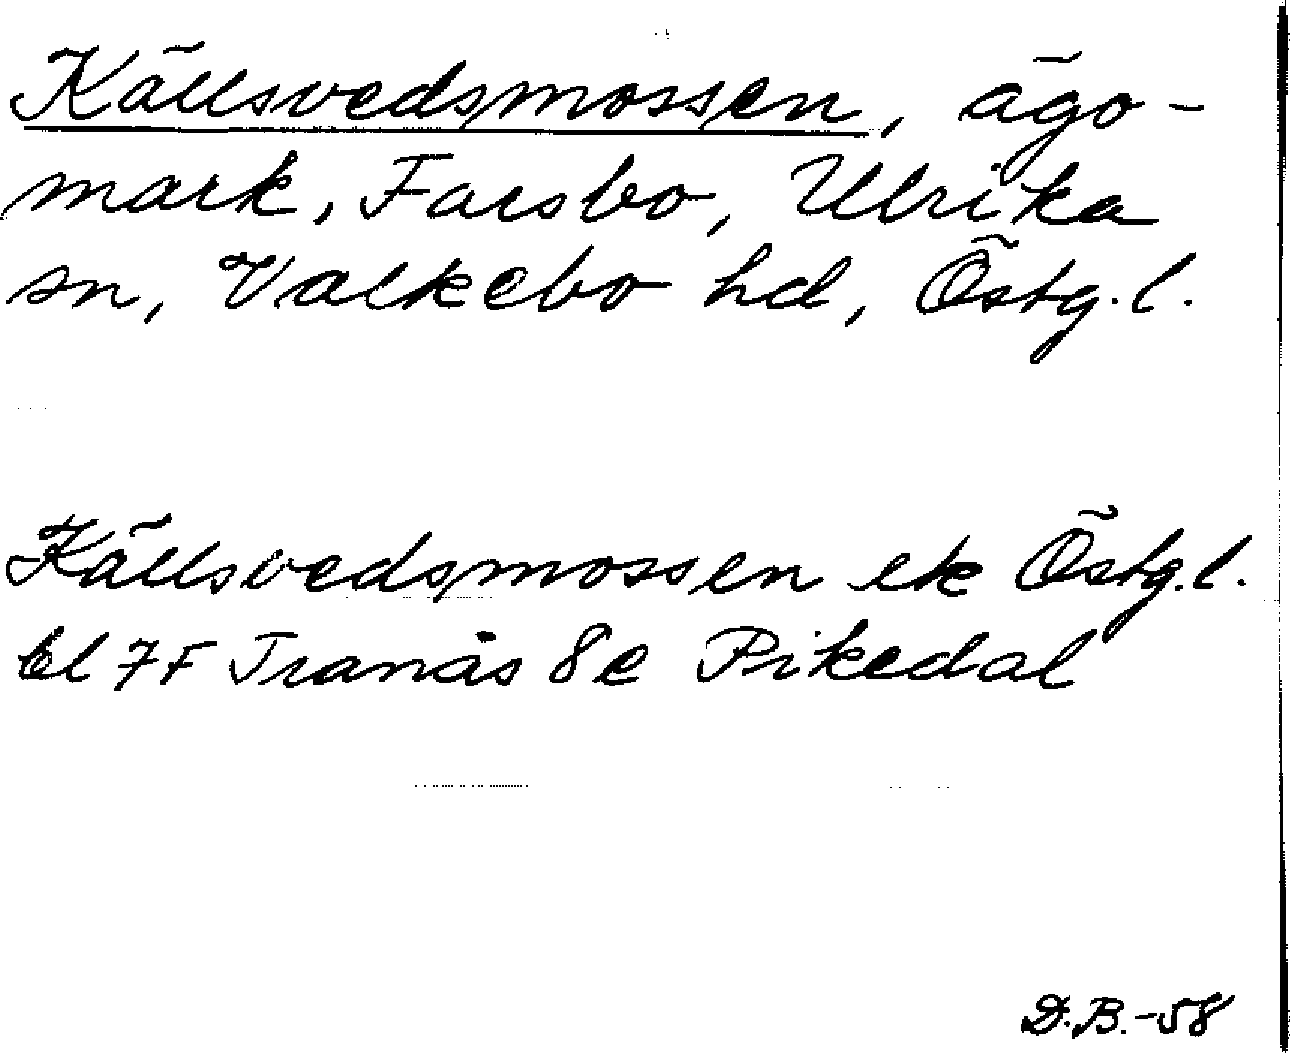 Källsvedsmossen, ägo-
mark, Farsbo, Ulrika
sn, Valkebo hd, Östg. l.
Källsvedsmossen ek Östg. l.
bl 7F Tranås 8e Pikedal
D.B.-58